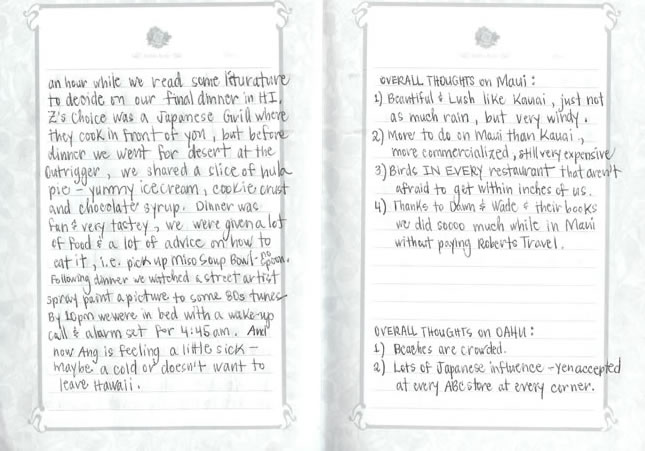 an hour while we read some liturature
to decide on our final dinner in HI.
Z's choice was a Japanese Grill where
they cook in front of you, but before
dinner we went for desert at the
Outrigger, we shared a slice of hula
pie - yummy icecream, cookie crust
and chocolate syrup. Dinner was
fun & very tastey, we were given a lot
of food & a lot of advice on how to
eat it, i.e. pick up Miso Soup Bowl - no spoon.
Following dinner we watched a street artist
spray paint a picture to some 80s tunes
By 10pm we were in bed with a wake-up
call & alarm set for 4:45am. And
now Ang is feeling a little sick -
maybe a cold or doesn't want to
leave Hawaii.
OVERALL THOUGHTS on Maui:
1) Beautiful & Lush like Kauai, just not
as much rain, but very windy.
2) More to do on Maui than Kauai,
more commercialized, still very expensive
3) Birds IN EVERY restaurant that aren't
afraid to get within inches of us.
4) Thanks to Dawn & Wade & their books
we did soooo much while in Maui
without paying Roberts Travel.
OVERALL THOUGHTS on OAHU:
1) Beaches are crowded.
2) Lots of Japanese influence - Yen accepted
at every ABC store at every corner.